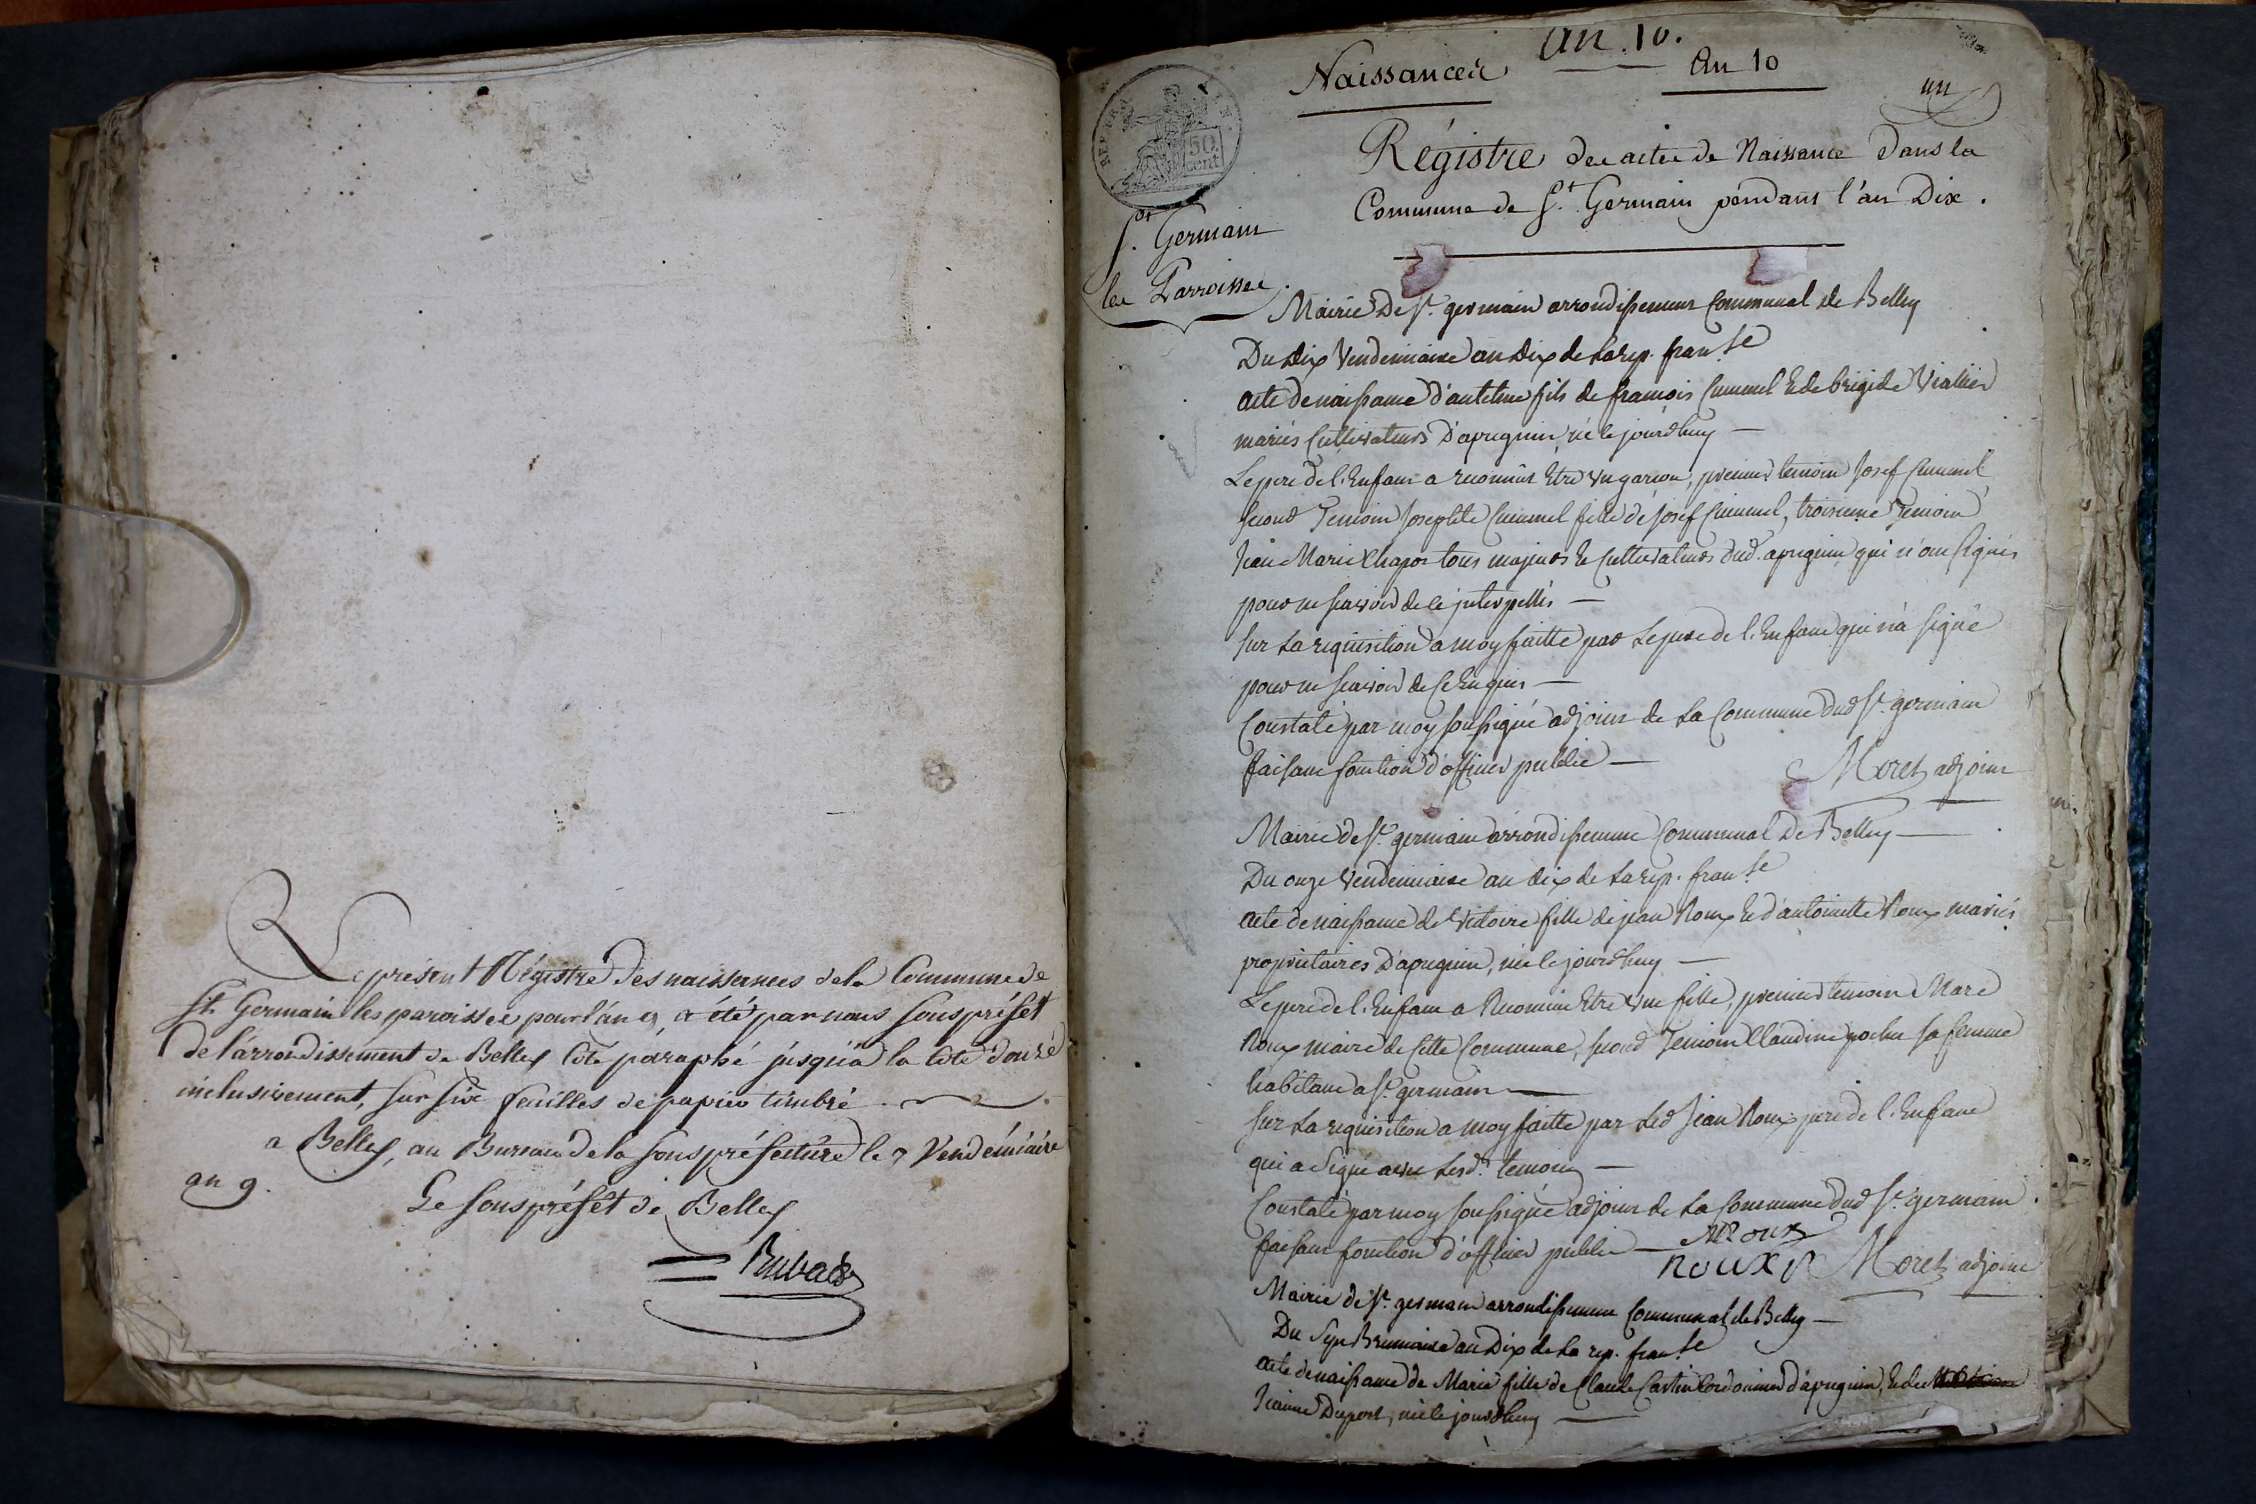 Le présent Régistre des naissances de la Commune de
St. Germain les paroisses pour l'an 9, a été par nous sous préfet
de l'arrondissement de Belley coté paraphé jusqu'à la cote douze
inclusivement, sur six feuilles de papier timbré.
a Belley, au Bureau de la sous préfecture le 7 Vendémiaire
an 9.
Le sous préfet de Belley
an 10.
Naissances
An 10
un
REP. FRA.
50
cent
St. Germain
les Parroisses.
Régistre des actes de Naissance dans la
Commune de St. Germain pendant l'an Dix.
Mairie De St. germain arrondissement Communal de Belley
Du dix Vendemiaire an dix de la rep. franse
acte de naissance d'antelme fils de francois Cummel et de brigide Viallier
mariés Cultivateurs D'apregnin, né le jourdhuy —
Le pere de l'Enfant a reconnût Etre un garcon, premier temoin Josef Cummel
second Temoin Josephte Cummel fille de Josef Cummel, troisieme Temoin
Jean Marie Chapot tous majeurs et Cultivateurs dud. apregnin qui n'ont signés
pour ne scavoir de ce jnterpellés —
sur la requisition a moy faitte par le pere de l'Enfant qui n'a signé
pour ne scavoir de ce Enquis —
Constaté par moy soussigné adjoint de la Commune dud St. germain
faisant fonction d'officier public —
Moret adjoint
Mairie de St. germain arrondissement Communal De Belley —
Du onze Vendemiaire an dix de la rep. franse
acte de naissance de Victoire fille de jean Roux et d'antoinette Roux mariés
proprietaires D'apregnin, née le jourdhuy —
Le pere de l'Enfant a Reconnu Etre une fille, premier temoin Marc
Roux maire de Cette Commune, second Temoin Claudine pochet sa femme
habitant a St. germain —
sur la requisition a moy faitte par led Jean Roux pere de l'Enfant
qui a signé avec lesd. temoins —
Constaté par moy soussigné adjoint de la Commune dud St. germain
faisant fonction d'officier public —
MRoux
ROUX
Moret adjoint
Mairie de St. germain arrondissement Communal de Belley —
Du Sept Brumaire an Dix de la rep. franse
acte de naissance de Marie fille de Claude Castin Cordonnier d'apregnin, et de
Jeanne Dupont, née le jourdhuy —